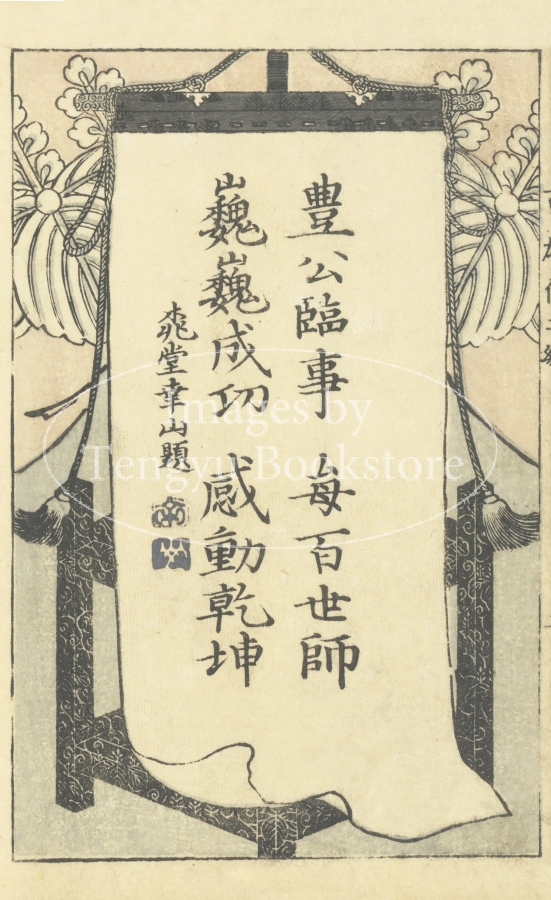 豊公臨事 毎百世師
巍巍成功 感動乾坤
堂幸山題
Images by
Tengyu Bookstore